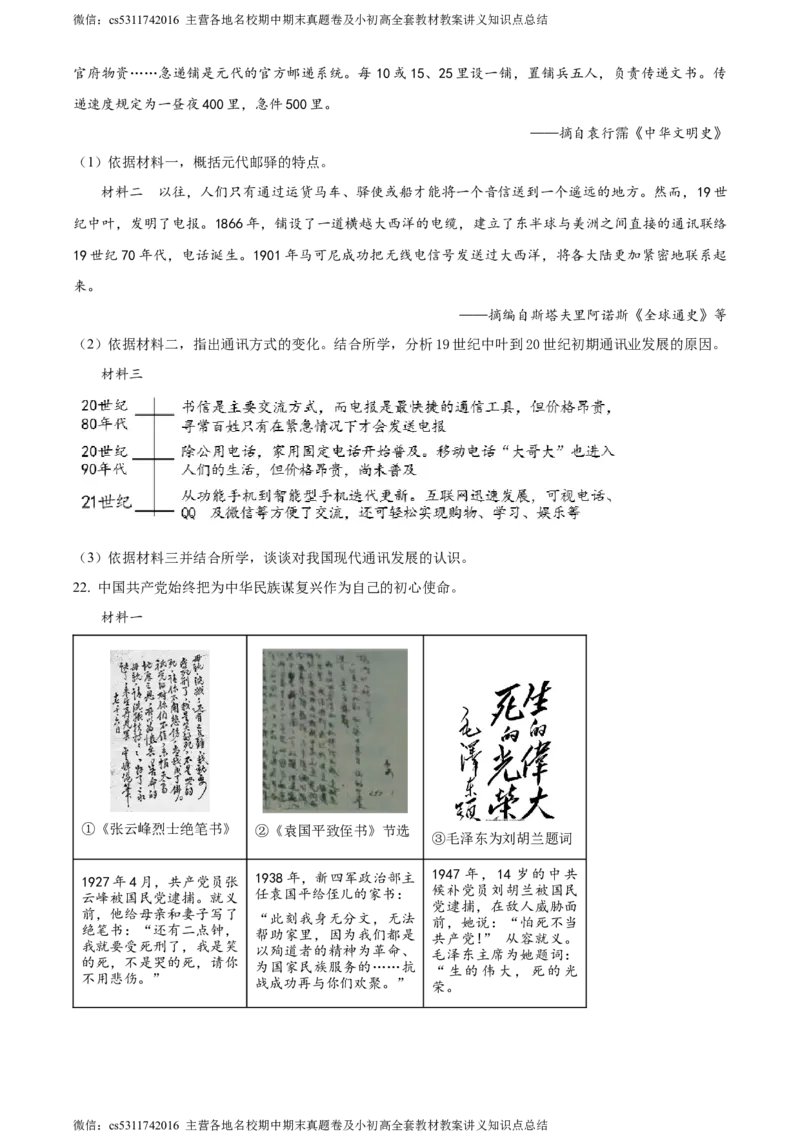 微信：cs5311742016 主营各地名校期中期末真题卷及小初高全套教材教案讲义知识点总结
官府物资……急递铺是元代的官方邮递系统。每 10 或 15、25 里设一铺，置铺兵五人，负责传递文书。传
递速度规定为一昼夜 400 里，急件 500 里。
——摘自袁行霈《中华文明史》
（1）依据材料一，概括元代邮驿的特点。
材料二 以往，人们只有通过运货马车、驿使或船才能将一个音信送到一个遥远的地方。然而，19 世
纪中叶，发明了电报。1866 年，铺设了一道横越大西洋的电缆，建立了东半球与美洲之间直接的通讯联络
19 世纪 70 年代，电话诞生。1901 年马可尼成功把无线电信号发送过大西洋，将各大陆更加紧密地联系起
来。
——摘编自斯塔夫里阿诺斯《全球通史》等
（2）依据材料二，指出通讯方式的变化。结合所学，分析19世纪中叶到20世纪初期通讯业发展的原因。
材料三
20世纪 书信是主要交流方式，而电报是最快捷的通信工具，但价格昂贵，
80年代 寻常百姓只有在紧急情况下才会发送电报
20世纪 除公用电话，家用固定电话开始普及。移动电话“大哥大”也进入
90年代 人们的生活，但价格昂贵，尚未普及
21世纪 从功能手机到智能型手机迭代更新。互联网迅速发展，可视电话、
QQ 及微信等方便了交流，还可轻松实现购物、学习、娱乐等
（3）依据材料三并结合所学，谈谈对我国现代通讯发展的认识。
22. 中国共产党始终把为中华民族谋复兴作为自己的初心使命。
材料一
生的偉大
死的光榮
毛澤东题
①《张云峰烈士绝笔书》
②《袁国平致侄书》节选
③毛泽东为刘胡兰题词
1927 年 4 月，共产党员张
云峰被国民党逮捕。就义
前，他给母亲和妻子写了
绝笔书：“还有二点钟，
我就要受死刑了，我是笑
的死，不是哭的死，请你
不用悲伤。”
1938 年，新四军政治部主
任袁国平给侄儿的家书：
“此刻我身无分文，无法
帮助家里，因为我们都是
以殉道者的精神为革命、
为国家民族服务的……抗
战成功再与你们欢聚。”
1947 年，14 岁的中共
候补党员刘胡兰被国民
党逮捕，在敌人威胁面
前，她说：“怕死不当
共产党！” 从容就义。
毛泽东主席为她题词：
“生的伟大，死的光
荣。
微信：cs5311742016 主营各地名校期中期末真题卷及小初高全套教材教案讲义知识点总结